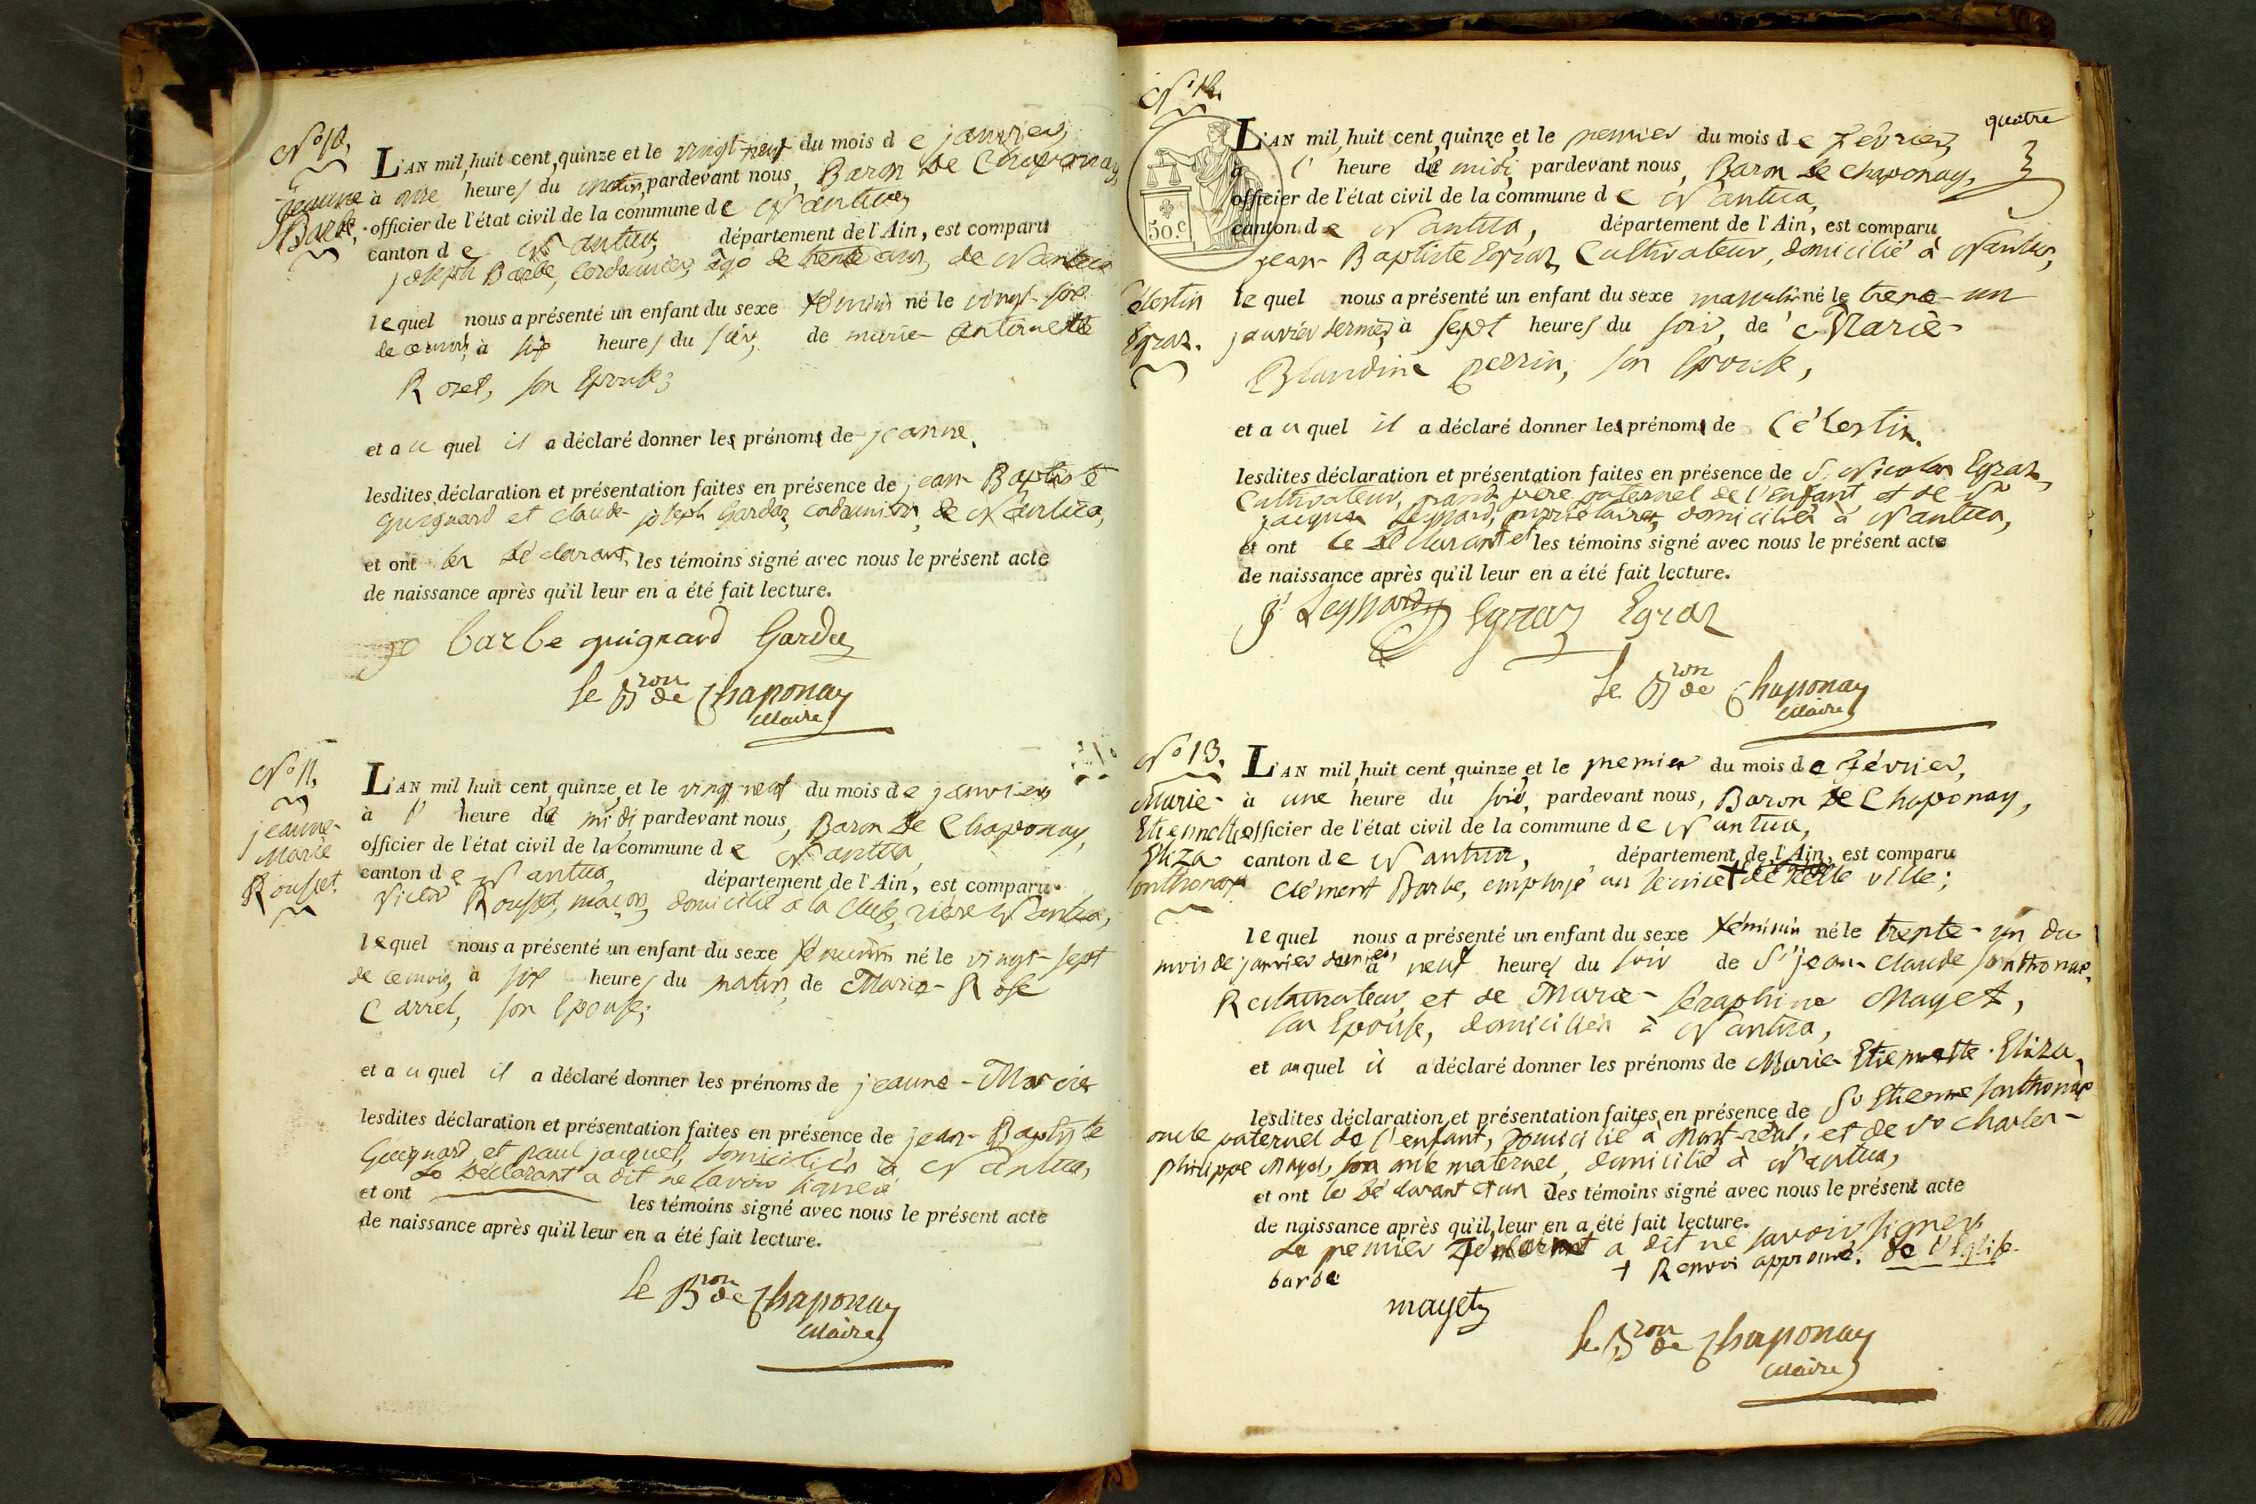 N° 10.
Jeanne
Barbe.
L'AN mil huit cent quinze et le vingt-neuf du mois de janvier,
à onze heures du matin, pardevant nous, Baron De Chaponay,
officier de l'état civil de la commune de Nantua,
canton de Nantua, département de l'Ain, est comparu
joseph Barbe, Cordonnier, âgé de trente ans, de Nantua
lequel nous a présenté un enfant du sexe féminin né le vingt-six
de ce mois, à six heures du soir, de marie-antoinette
Rozet, son Epouse;
et auquel il a déclaré donner les prénoms de jeanne.
lesdites déclaration et présentation faites en présence de jean-Baptiste
Guignard et claude joseph Gardaz, cordonniers, de Nantua,
et ont les Déclarant, les témoins signé avec nous le présent acte
de naissance après qu'il leur en a été fait lecture.
barbe guignard Gardaz
le Bron de Chaponay
Maire
N° 11.
jeanne-
Marie
Rousset.
L'AN mil huit cent quinze et le vingt neuf du mois de janvier,
à l' heure de midi, pardevant nous, Baron De Chaponay,
officier de l'état civil de la commune de Nantua,
canton de Nantua, département de l'Ain, est comparu
Victor Rousset, maçon, domicilié à la Cluse, rière Nantua,
lequel nous a présenté un enfant du sexe féminin né le vingt-sept
de ce mois, à six heures du matin, de Marie-Rose
Carrel, son Epouse;
et auquel il a déclaré donner les prénoms de jeanne-Marie
lesdites déclaration et présentation faites en présence de jean-Baptiste
Guignard, et paul jacquet, domiciliés à Nantua,
Le Déclarant a dit ne savoir signer
et ont les témoins signé avec nous le présent acte
de naissance après qu'il leur en a été fait lecture.
le Bron de Chaponay
Maire
N° 12.
quatre
50.c
Célestin
Egraz.
L'AN mil huit cent quinze et le premier du mois de février,
à l' heure de midi, pardevant nous, Baron De Chaponay,
officier de l'état civil de la commune de Nantua,
canton de Nantua, département de l'Ain, est comparu
jean-Baptiste Egraz, Cultivateur, domicilié à Nantua,
lequel nous a présenté un enfant du sexe masculin né le trente-un
janvier dernier, à sept heures du soir, de Marie-
Blandine perrin, son Epouse,
et auquel il a déclaré donner les prénoms de Célestin.
lesdites déclaration et présentation faites en présence de S. Nicolas Egraz,
Cultivateur, grand père paternel de l'enfant et de Sr
jacques Leynard, propriétaires, domiciliés à Nantua,
et ont le Déclarant et les témoins signé avec nous le présent acte
de naissance après qu'il leur en a été fait lecture.
Jq Leynard Egraz Egraz
le Bron de Chaponay
Maire
N° 13.
Marie-
Etiennette
Eliza
Sonthonax
L'AN mil huit cent quinze et le premier du mois de février,
à une heure du soir, pardevant nous, Baron De Chaponay,
officier de l'état civil de la commune de Nantua,
canton de Nantua, département de l'Ain, est comparu
Clément Barbe, employé au service + de cette ville;
lequel nous a présenté un enfant du sexe féminin né le trente-un du
mois de janvier dernier, à neuf heures du soir de Sr jean-claude Sonthonax,
Restaurateur, et de Marie-Séraphine Mayet,
son Epouse, domiciliés à Nantua,
et auquel il a déclaré donner les prénoms de Marie Etiennette Eliza,
lesdites déclaration et présentation faites en présence de Sr Etienne Sonthonax
oncle paternel de l'enfant, domicilié à Mont-réal, et de Sr Charles-
philippe Mayet, son oncle maternel, domicilié à Nantua,
et ont le Déclarant et un des témoins signé avec nous le présent acte
de naissance après qu'il leur en a été fait lecture.
Le premier témoin a dit ne savoir signer
+ Renvoi approuvé. de l'Eglise
barbe
mayet
le Bron de Chaponay
Maire